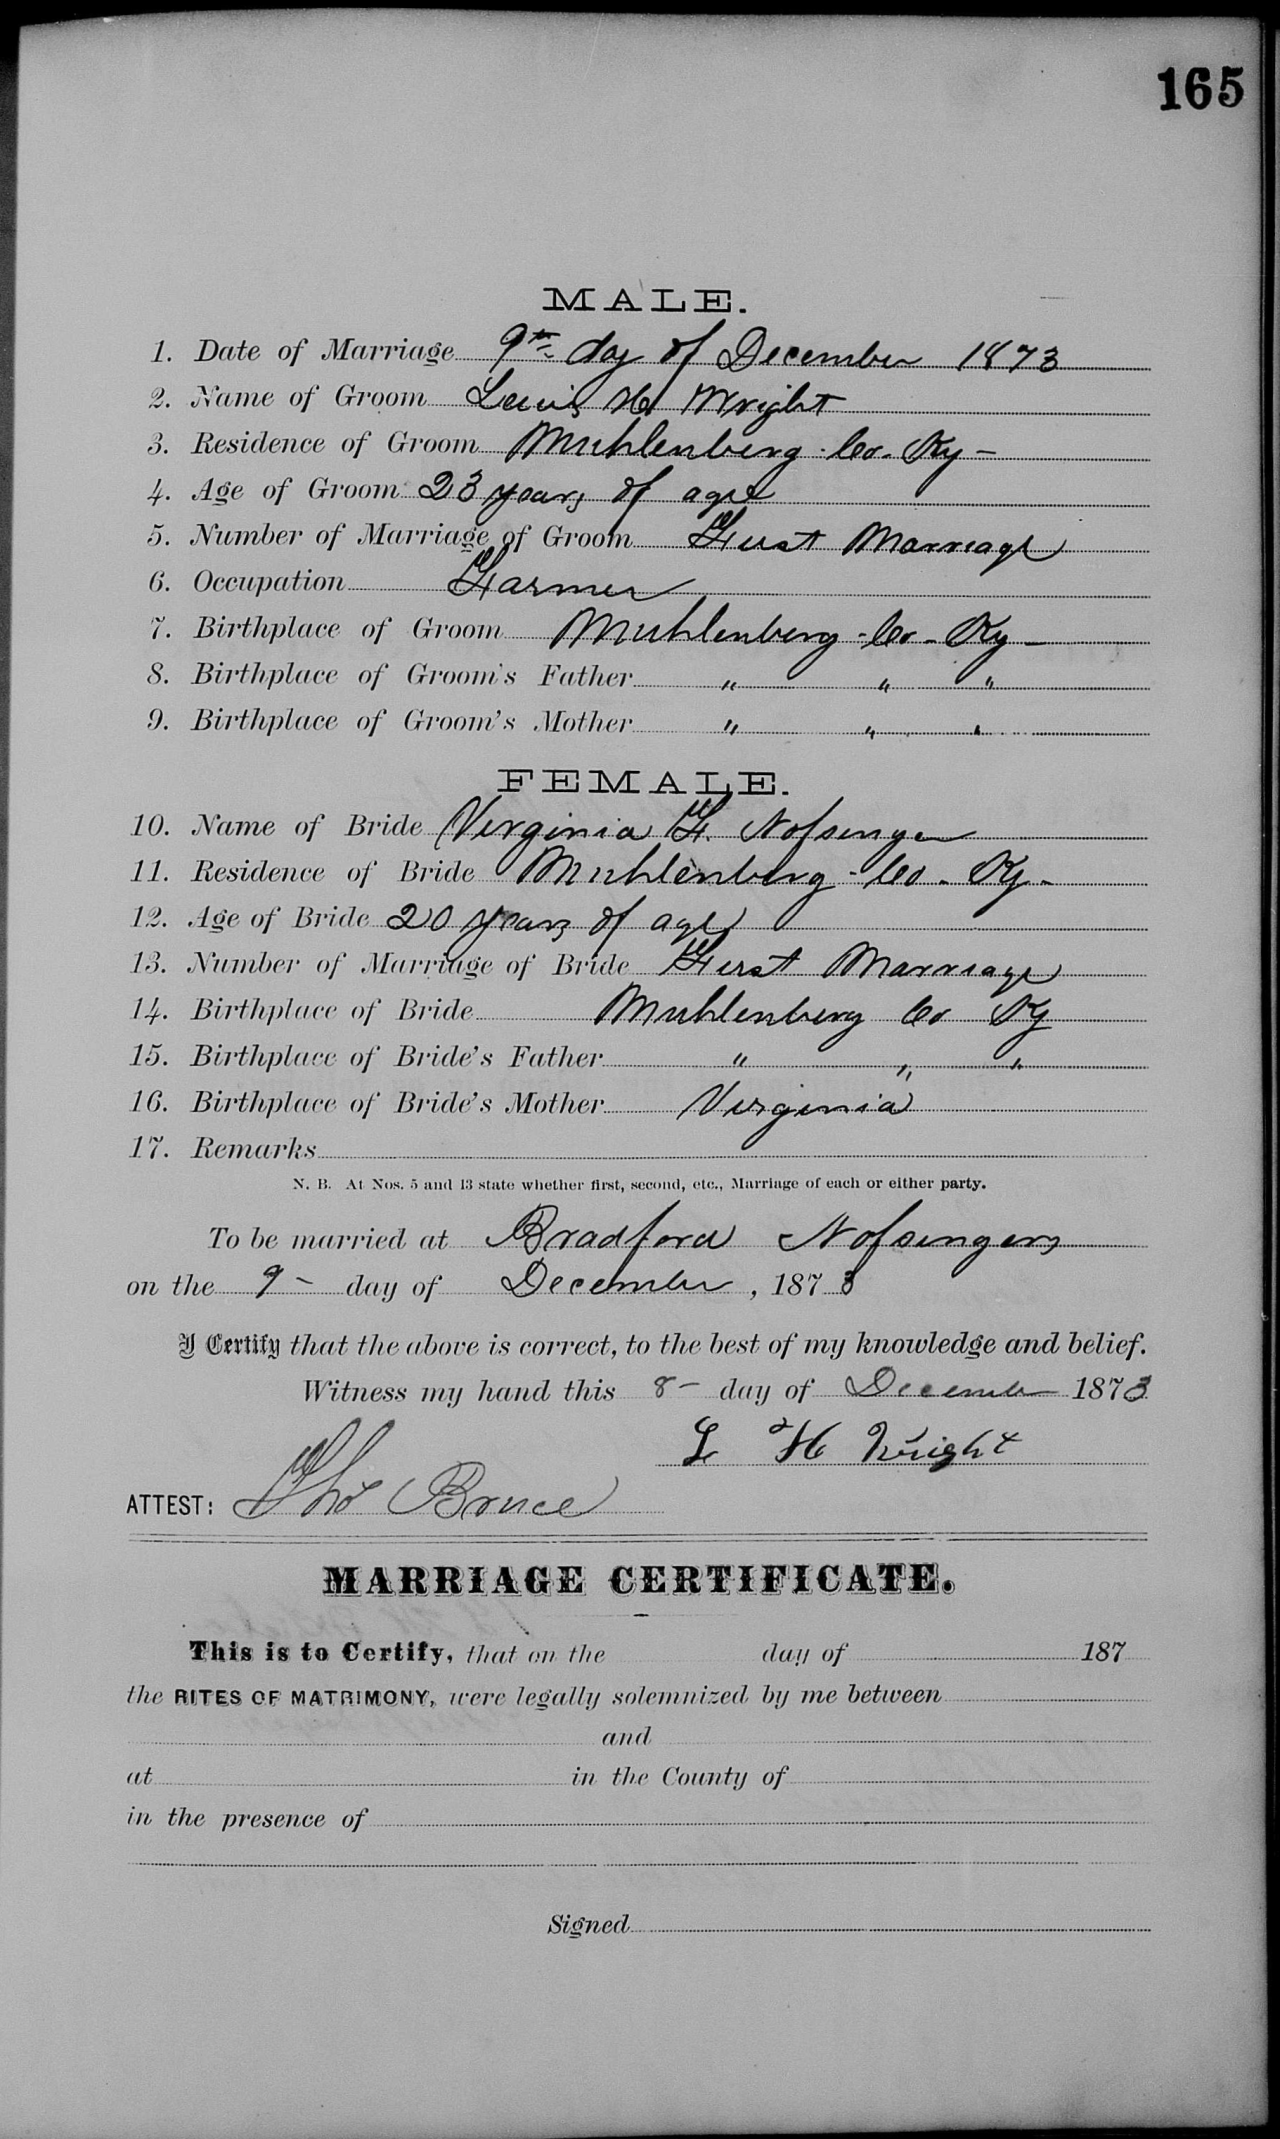 165
MALE.
1. Date of Marriage 9th day of December 1873
2. Name of Groom Lewis H Wright
3. Residence of Groom Muhlenberg Co. Ky -
4. Age of Groom 23 years of age
5. Number of Marriage of Groom First Marriage
6. Occupation Farmer
7. Birthplace of Groom Muhlenberg - Co - Ky -
8. Birthplace of Groom's Father " " "
9. Birthplace of Groom's Mother " " "
FEMALE.
10. Name of Bride Virginia F. Nofsinger
11. Residence of Bride Muhlenberg - Co - Ky -
12. Age of Bride 20 years of age
13. Number of Marriage of Bride First Marriage
14. Birthplace of Bride Muhlenberg Co Ky
15. Birthplace of Bride's Father " " "
16. Birthplace of Bride's Mother Virginia
17. Remarks
N. B. At Nos. 5 and 13 state whether first, second, etc., Marriage of each or either party.
To be married at Bradford Nofsingers
on the 9 - day of December, 1873
I Certify that the above is correct, to the best of my knowledge and belief.
Witness my hand this 8 - day of December 1873
L H Wright
ATTEST: Tho Bruce
MARRIAGE CERTIFICATE.
This is to Certify, that on the day of 187
the RITES OF MATRIMONY, were legally solemnized by me between
and
at in the County of
in the presence of
Signed